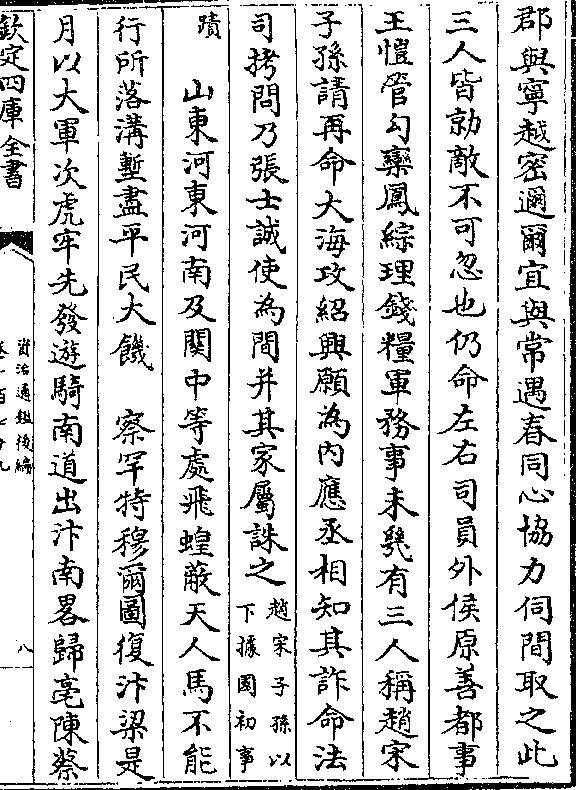 郡與寧越密邇爾宜與常遇春同心協力伺間取之此
三人皆勍敵不可忽也仍命左右司員外侯原善都事
王愷管勾欒鳳綜理錢糧軍務事未㡬有三人稱趙宋
子孫請再命大海攻紹興願為内應丞相知其詐命法
司拷問乃張士誠使為間并其家屬誅之趙宋子孫以
下據國初事
蹟　山東河東河南及關中等處飛蝗蔽天人馬不能
行所落溝塹盡平民大饑　察罕特穆爾圖復汴梁是
月以大軍次虎牢先發遊騎南道出汴南畧歸亳陳蔡
欽定四庫全書
資治通鑑後編
卷一百七十九
八